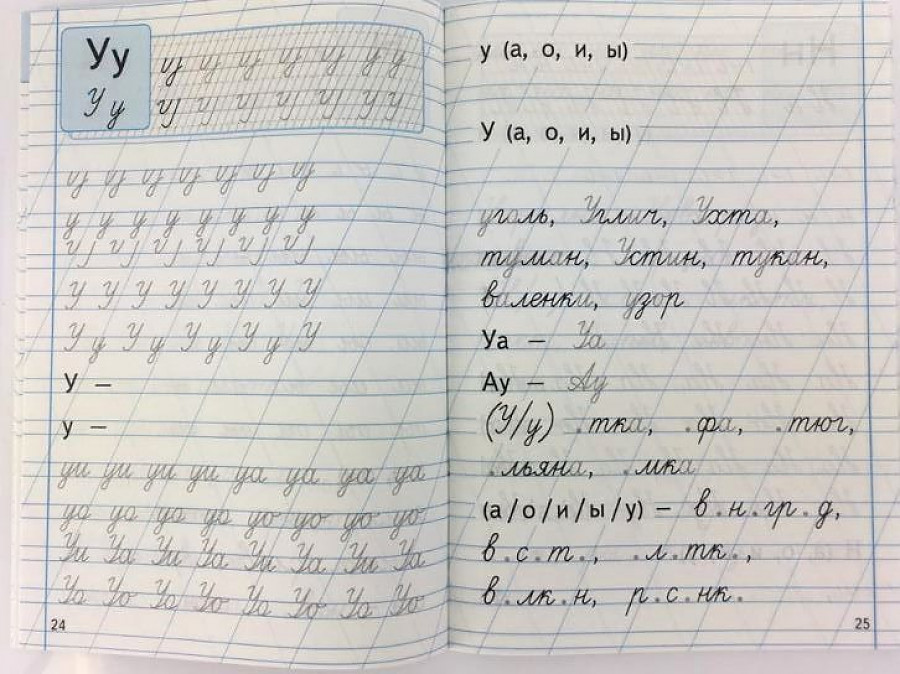 Уу у у у у у у у
У у У У У У У У У
у у у у у у у
у у у у у у у у
У У У У У У У
У У У У У У У У
У у У у У у У у У
У –
у –
уи уи уи уи уа уа уа уа
уо уо уо уо уо уо уо уо
Уи Уа Уи Уа Уи Уа Уи Уа
Уо Уо Уо Уо Уо Уо Уо Уо
24
у (а, о, и, ы)
У (а, о, и, ы)
уголь, Углич, Ухта,
туман, Устин, тукан,
валенки, узор
Уа – Уа
Ау – Ау
(У/у) .тка, .фа, .тюг,
.льяна, .мка
(а/о/и/ы/у) – в.н.гр.д,
в.с.т., .л.тк.,
в.лк.н, р.с.нк.
25